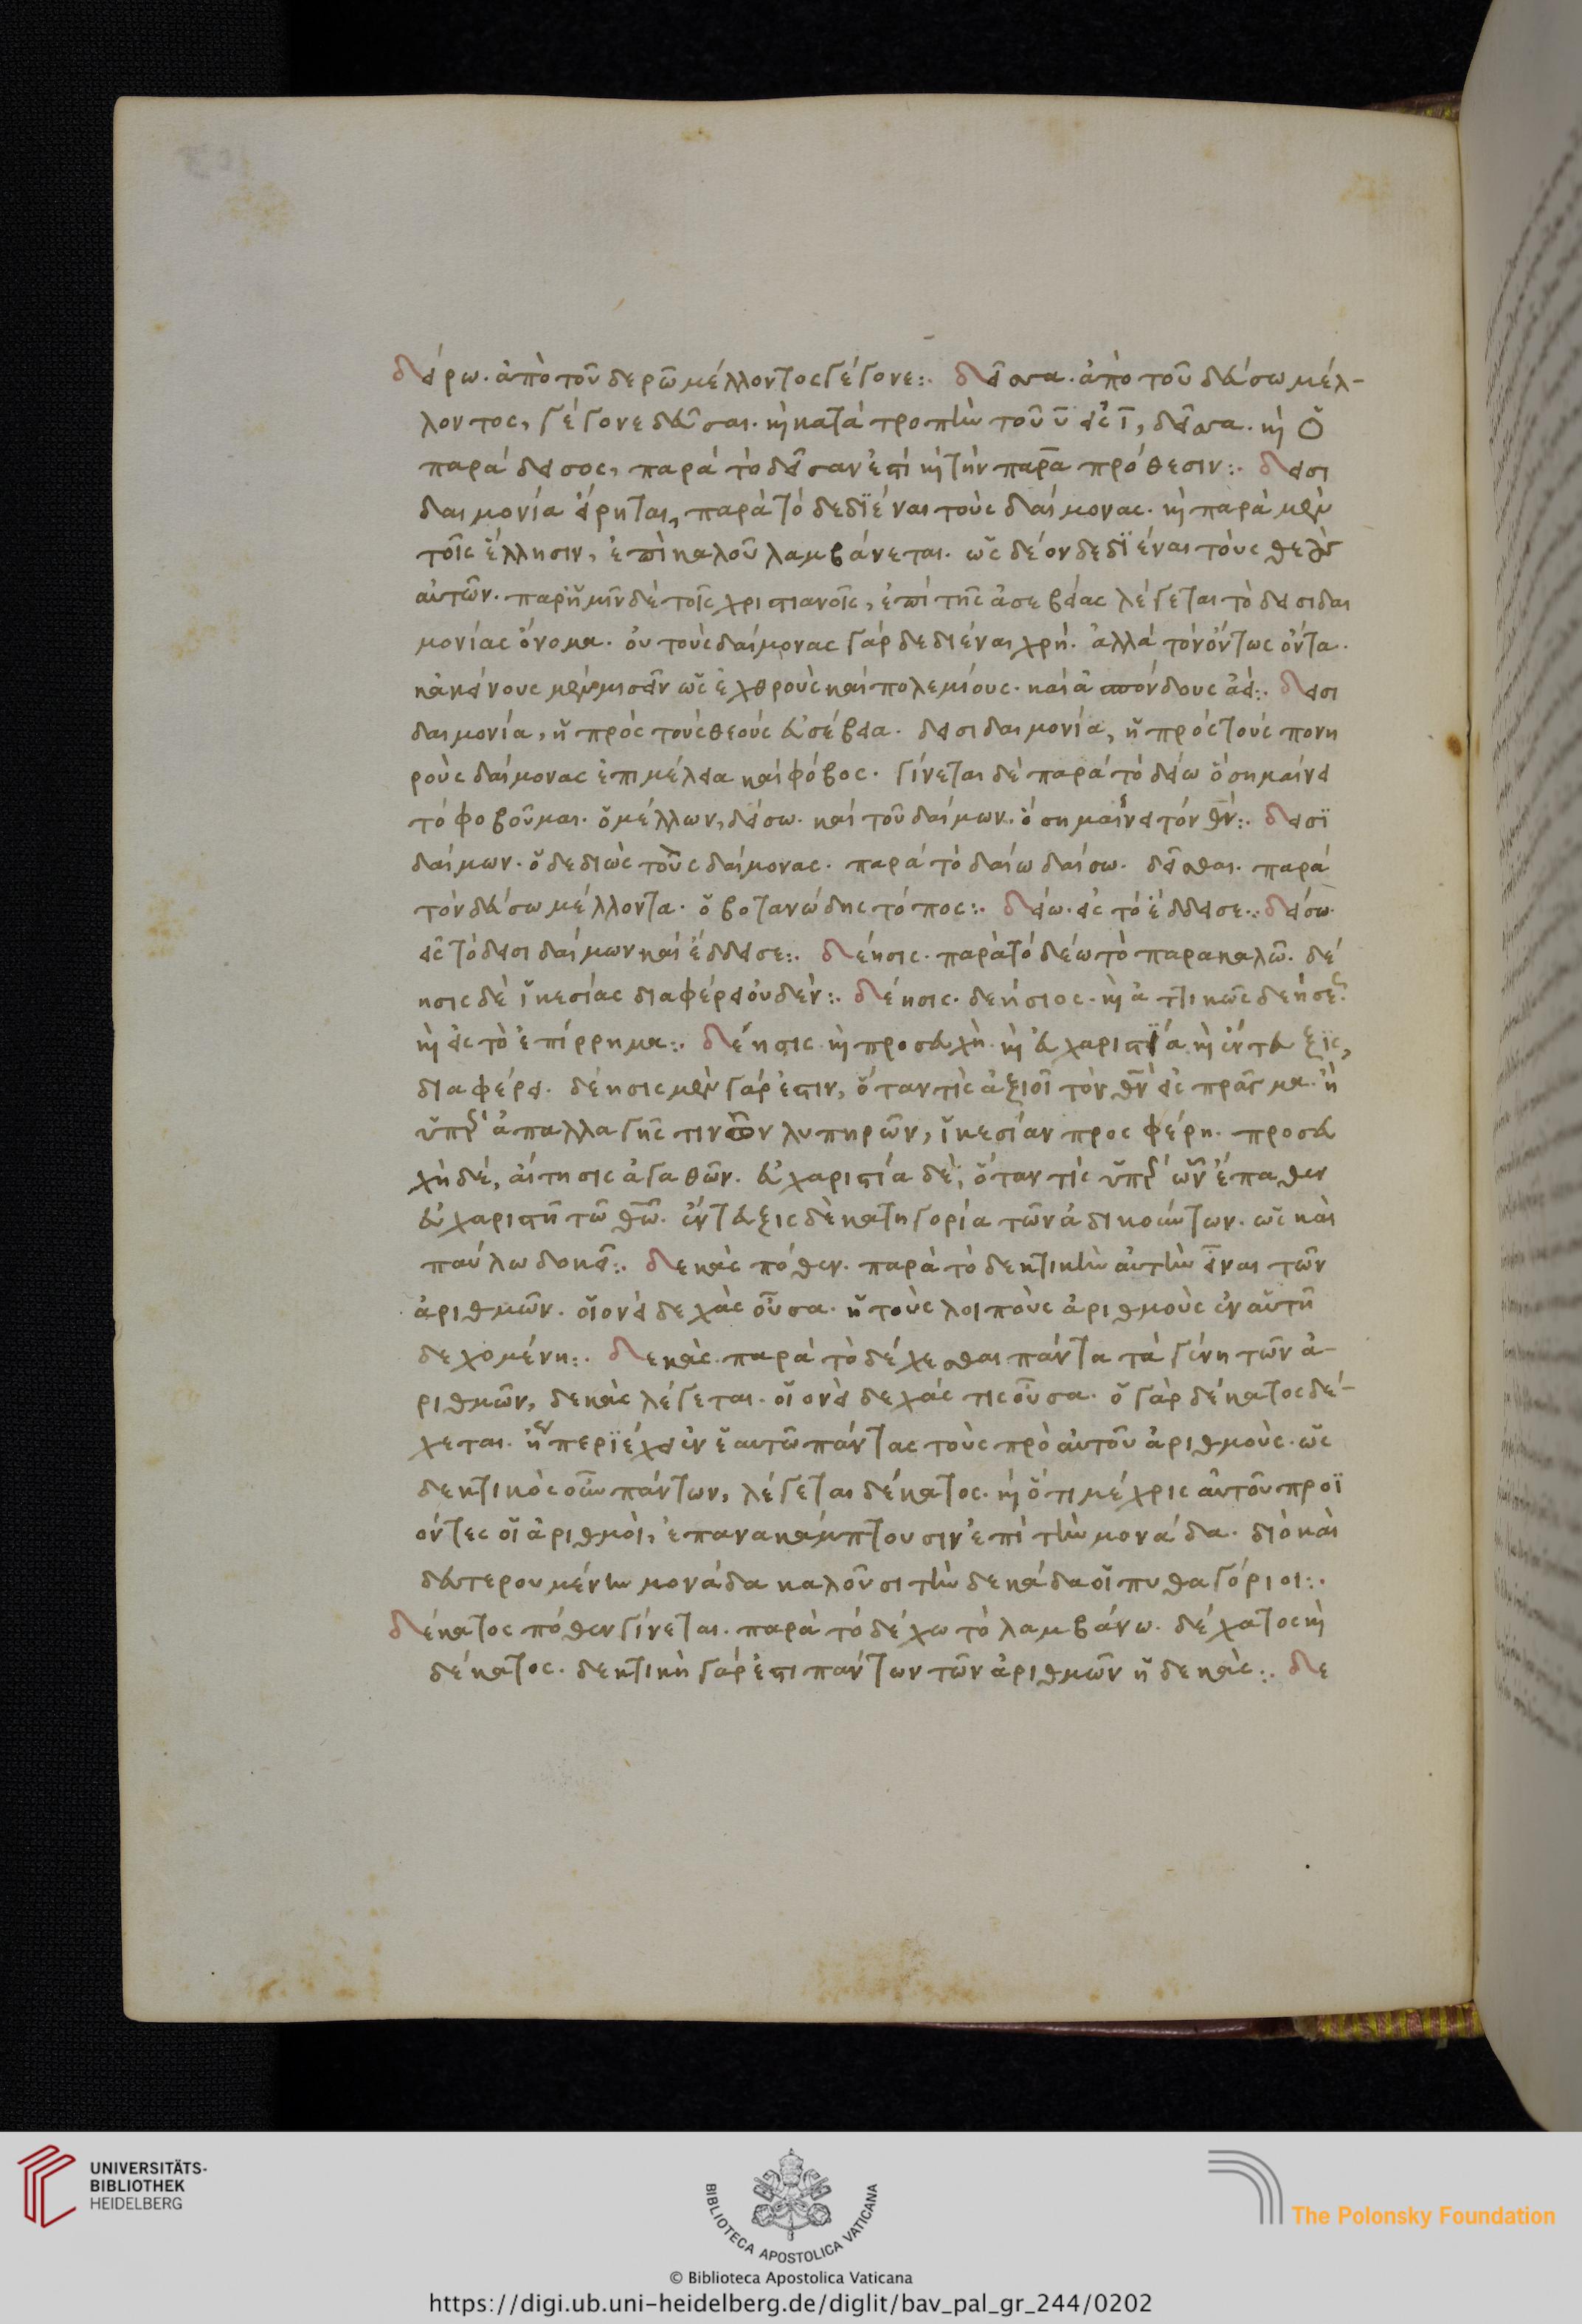 δείρω. ἀπὸ τοῦ δερῶ μέλλοντος γέγονε:. δεῖσα. ἀπὸ τοῦ δεύσω μέλ-
λοντος, γέγονε δεῦσαι. καὶ κατὰ τροπὴν τοῦ υ εἰς ι, δεῖσα. καὶ ὁ
παράδεισος, παρὰ τὸ δεῖσαν ἐστὶ καὶ τὴν παρὰ πρόθεσιν:. δεισι
δαιμονία εἴρηται, παρὰ τὸ δεδϊέναι τοὺς δαίμονας. καὶ παρὰ μὲν
τοῖς ἕλλησιν, ἐπὶ καλοῦ λαμβάνεται. ὡς δέον δεδϊέναι τοὺς θεοὺς
αὐτῶν. παρ' ἡμῖν δὲ τοῖς χριστιανοῖς, ἐπὶ τῆς ἀσεβείας λέγεται τὸ δεισιδαι
μονίας ὄνομα. οὐ τοὺς δαίμονας γὰρ δεδιέναι χρή. ἀλλὰ τὸν ὄντως ὄντα.
κἀκείνους μὲν μισεῖν ὡς ἐχθροὺς καὶ πολεμίους. καὶ ἀσπόνδους ἀεί:. δεισι
δαιμονία, ἡ πρὸς τοὺς θεοὺς εὐσέβεια. δεισιδαιμονία, ἡ πρὸς τοὺς πονη
ροὺς δαίμονας ἐπιμέλεια καὶ φόβος. γίνεται δὲ παρὰ τὸ δείω ὁ σημαίνει
τὸ φοβοῦμαι. ὁ μέλλων, δείσω. καὶ τοῦ δαίμων. ὁ σημαίνει τὸν θν:. δεισϊ
δαίμων. ὁ δεδιὼς τοὺς δαίμονας. παρὰ τὸ δαίω δαίσω. δεῖσθαι. παρὰ
τὸν δεύσω μέλλοντα. ὁ βοτανώδης τόπος:. δείω. εἰς τὸ ἔδδεισε:. δείσω.
εἰς τὸ δεισιδαίμων καὶ ἔδδεισε:. δέησις. παρὰ τὸ δέω τὸ παρακαλῶ. δέ
ησις δὲ ἱκεσίας διαφέρει οὐδέν:. δέησις. δεήσιος. καὶ ἀττικῶς δεήσεως.
καὶ εἰς τὸ ἐπίρρημα:. δέησις καὶ προσευχὴ καὶ εὐχαριστία καὶ ἔντευξις,
διαφέρει. δέησις μὲν γάρ ἐστιν, ὅταν τὶς ἀξιοῖ τὸν θν εἰς πρᾶγμα. ἢ
ὑπὲρ ἀπαλλαγῆς τινῶν λυπηρῶν, ἱκεσίαν προςφέρη. προσευ
χὴ δέ, αἴτησις ἀγαθῶν. εὐχαριστία δέ, ὅταν τίς ὑπὲρ ὧν ἔπαθεν
εὐχαριστῆ τῶ θῶ. ἔντευξις δὲ κατηγορία τῶν ἀδικούντων. ὡς καὶ
παύλω δοκεῖ:. δεκὰς πόθεν. παρὰ τὸ δεκτικὴν αὐτὴν εἶναι τῶν
ἀριθμῶν. οἱονεὶ δεχὰς οὖσα. ἡ τοὺς λοιποὺς ἀριθμοὺς ἐν αὐτῆ
δεχομένη:. δεκὰς. παρὰ τὸ δέχεσθαι πάντα τὰ γένη τῶν ἀ-
ριθμῶν, δεκὰς λέγεται. οἱονεὶ δεχάς τις οὖσα. ὁ γὰρ δέκατος δέ-
χεται. ἤγουν περϊέχει ἐν ἑαυτῶ πάντας τοὺς πρὸ αὐτοῦ ἀριθμούς. ὡς
δεκτικὸς οὖν πάντων, λέγεται δέκατος. καὶ ὅτι μέχρις αὐτοῦ προϊ
όντες οἱ ἀριθμοὶ, ἐπανακάμπτουσιν ἐπὶ τὴν μονάδα. διὸ καὶ
δευτερουμένην μονάδα καλοῦσι τὴν δεκάδα οἱ πυθαγόριοι:.
δέκατος πόθεν γίνεται. παρὰ τὸ δέχω τὸ λαμβάνω. δέχατος καὶ
δέκατος. δεκτικὴ γάρ ἐστι πάντων τῶν ἀριθμῶν ἡ δεκάς:. δε
UNIVERSITÄTS-
BIBLIOTHEK
HEIDELBERG
BIBLIOTECA APOSTOLICA VATICANA
The Polonsky Foundation
© Biblioteca Apostolica Vaticana
https://digi.ub.uni-heidelberg.de/diglit/bav_pal_gr_244/0202